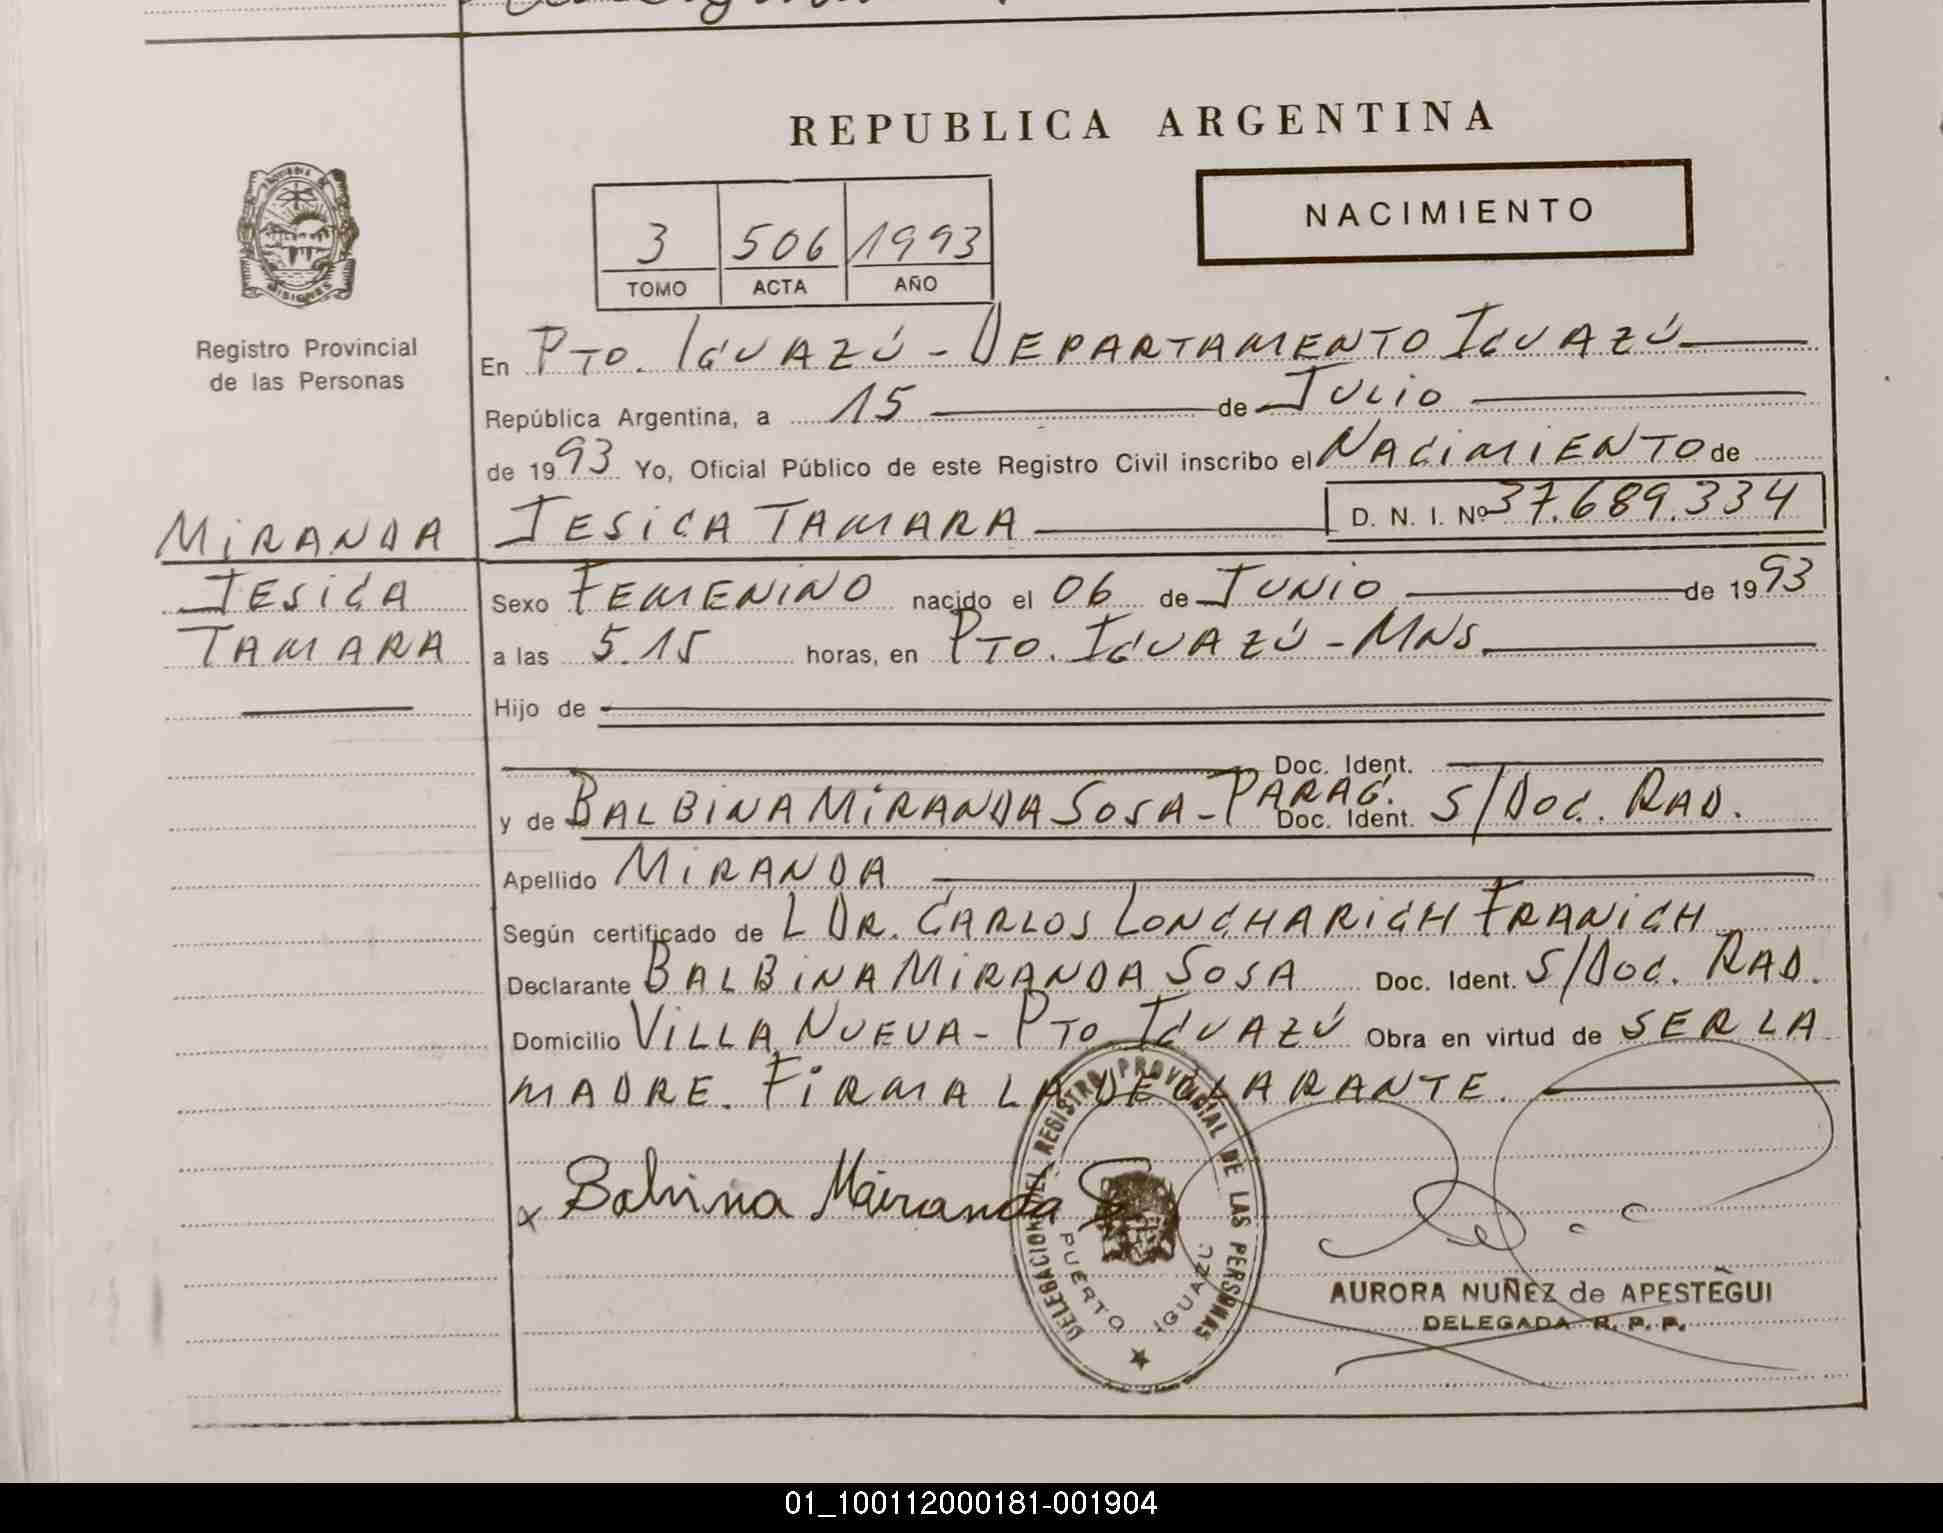 REPUBLICA ARGENTINA
NACIMIENTO
3 506 1993
TOMO ACTA AÑO
MISIONES
Registro Provincial
de las Personas
En PTO. IGUAZÚ - DEPARTAMENTO IGUAZÚ
República Argentina, a 15 de JULIO
de 1993 Yo, Oficial Público de este Registro Civil inscribo el NACIMIENTO de
MIRANDA JESICA TAMARA D. N. I. Nº 37.689.334
JESICA Sexo FEMENINO nacido el 06 de JUNIO de 1993
TAMARA a las 5.15 horas, en PTO. IGUAZÚ - MNS.
Hijo de
Doc. Ident.
y de BALBINA MIRANDA SOSA - PARAG. Doc. Ident. S/DOC. RAD.
Apellido MIRANDA
Según certificado de L DR. CARLOS LONCHARICH FRANICH
Declarante BALBINA MIRANDA SOSA Doc. Ident. S/DOC. RAD.
Domicilio VILLA NUEVA - PTO IGUAZÚ Obra en virtud de SER LA
MADRE. FIRMA LA DECLARANTE.
x Balvina Mairanda S
DELEGACION DEL REGISTRO PROVINCIAL DE LAS PERSONAS
PUERTO IGUAZU
AURORA NUÑEZ de APESTEGUI
DELEGADA R. P. P.
01_100112000181-001904